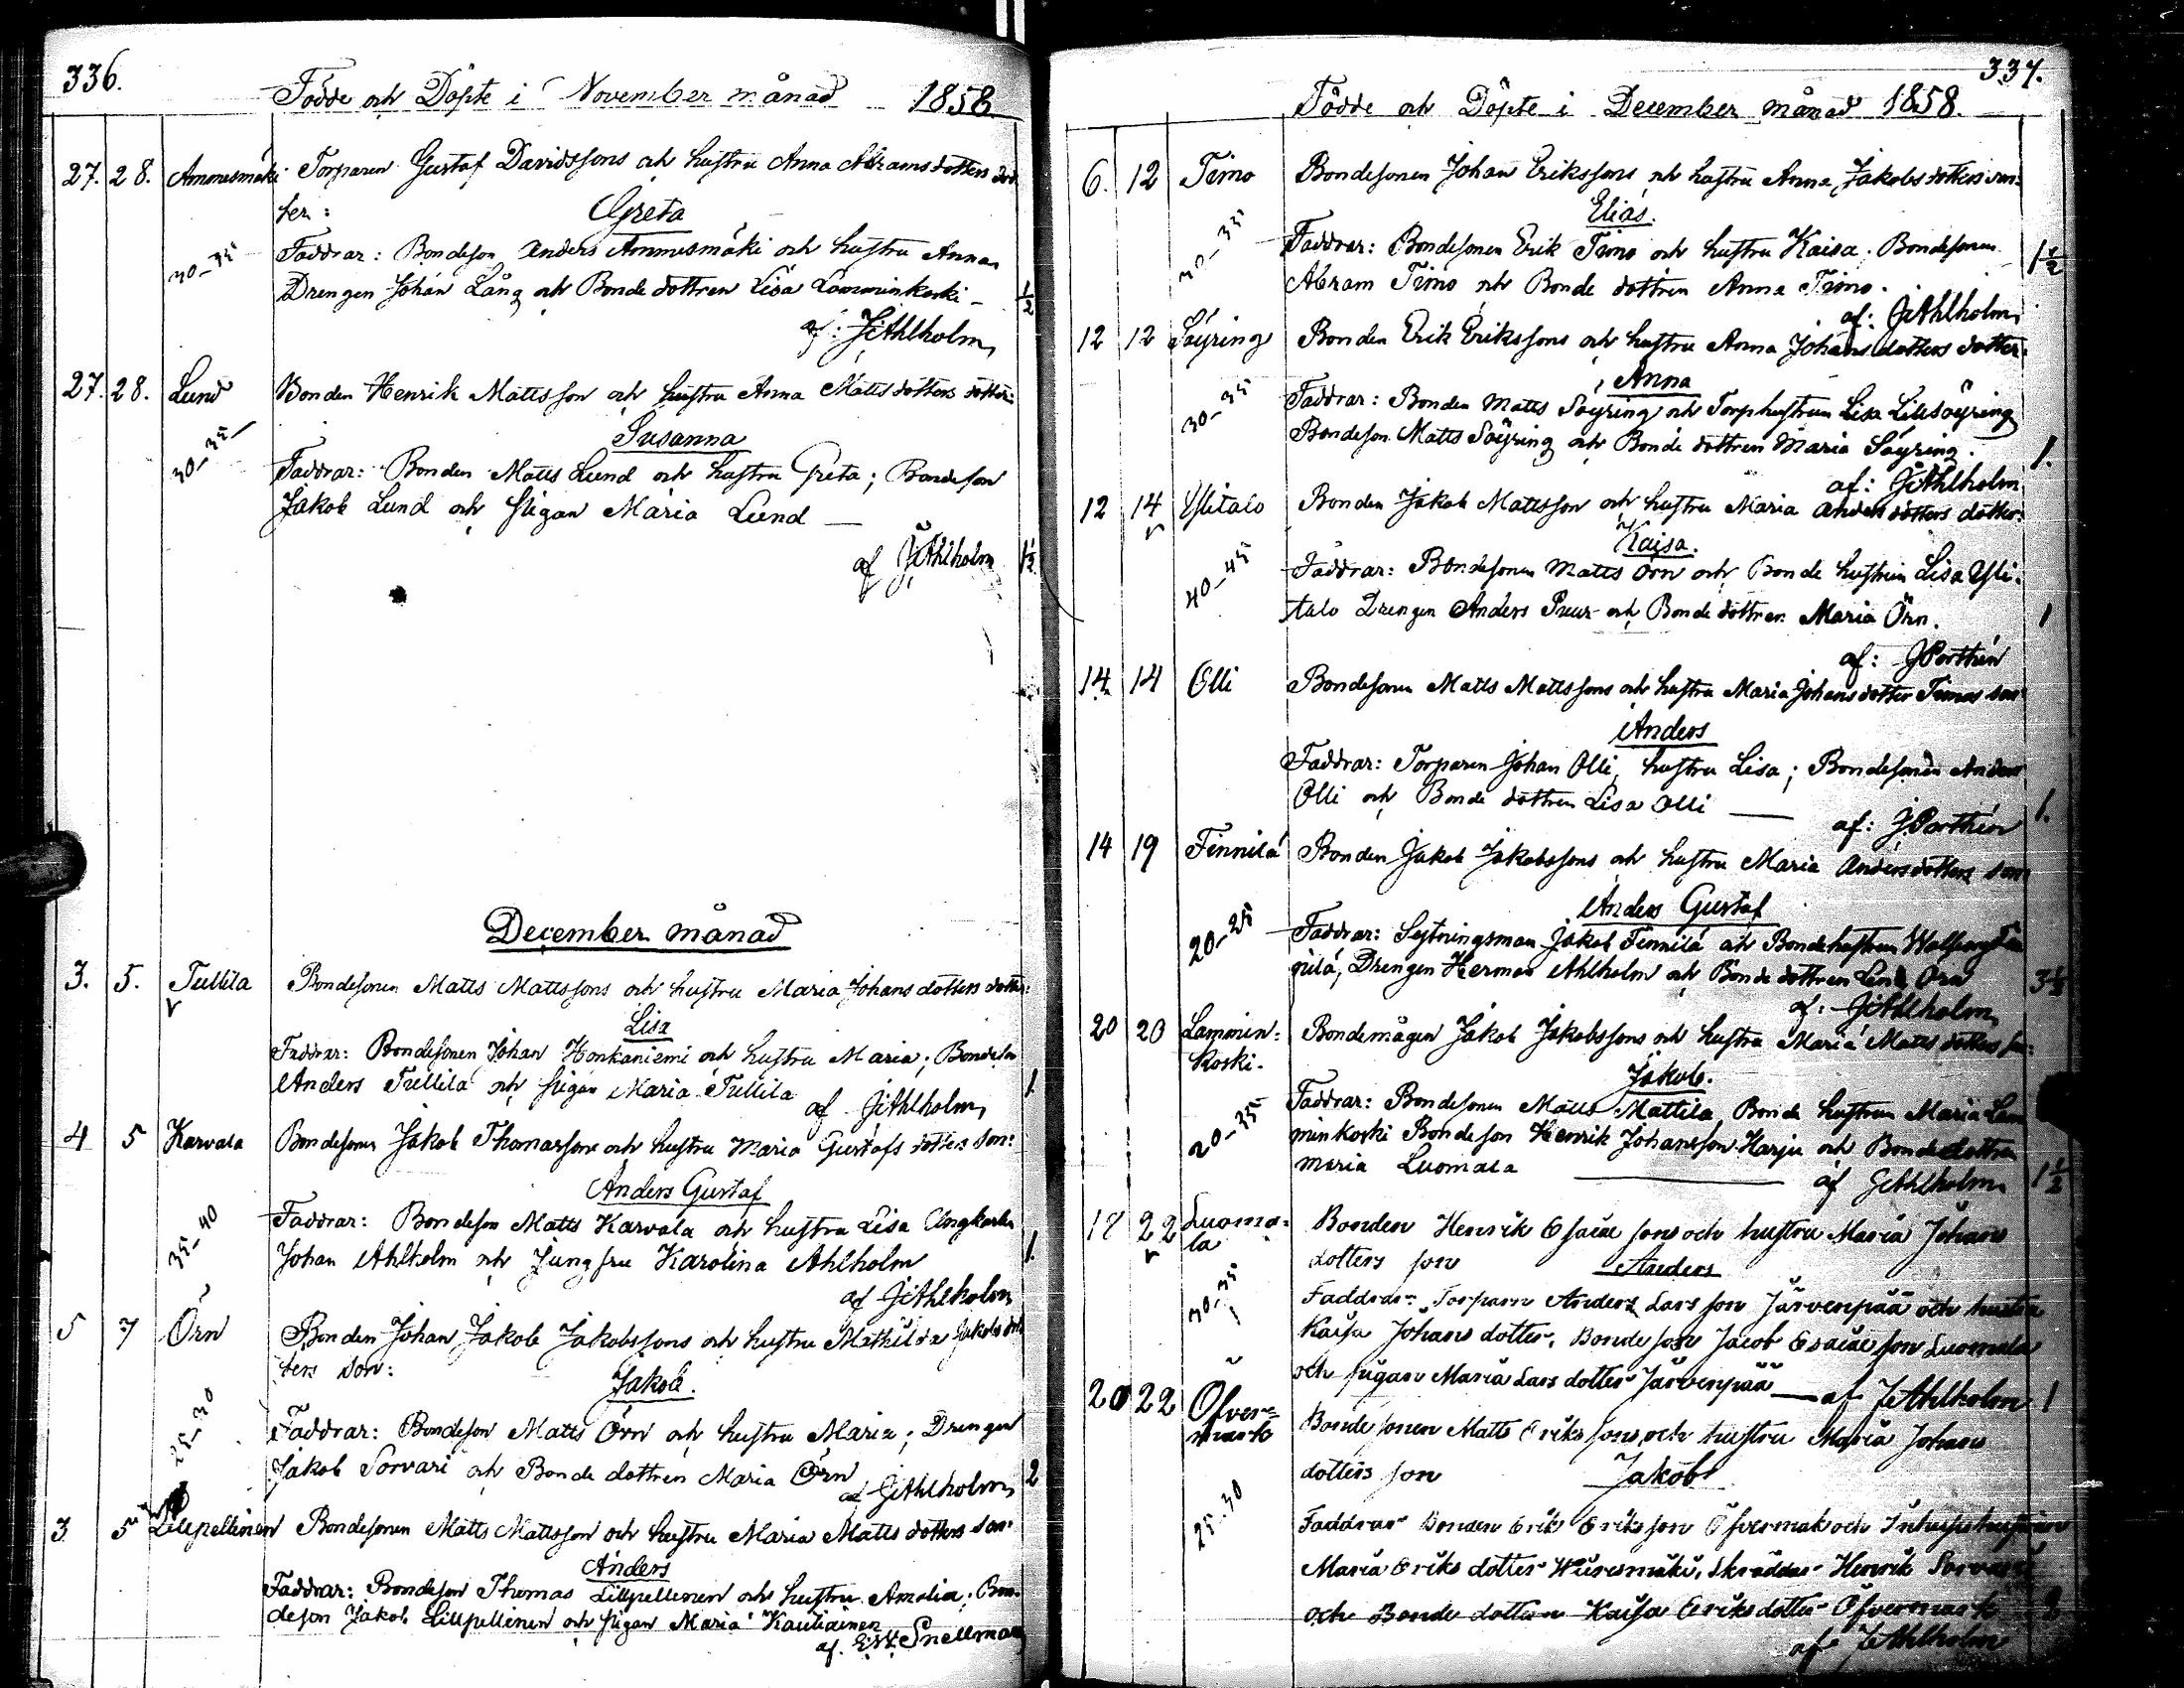 336.
Födde och Döpte i November månad 1858
27. 28. Ammesmäki Torparen Gustaf Davidssons och hustru Anna Abramsdotters dot
ter: Greta
30-35 Faddrar: Bondeson Anders Ammesmäki och hustru Anna
Drengen Johan Lång och Bonde dottren Lisa Lamminkoski - 1/2
af: JAhlholm
27. 28. Lund Bonden Henrik Mattsson och hustru Anna Matts dotters dotter:
Susanna
30-35 Faddrar: Bonden Matts Lund och hustru Greta; Bondeson
Jakob Lund och pigan Maria Lund —
af JAhlholm 1 1/2
December månad
3. 5. Tullila Bondesonen Matts Mattssons och hustru Maria Johans dotters dotter:
Lisa
Faddrar: Bondesonen Johan Honkaniemi och hustru Maria; Bondeson
Anders Tullila och pigan Maria Tullila 1
af JAhlholm
4 5 Karvala Bondesonen Jakob Thomasson och hustru Maria Gustafs dotters son:
Anders Gustaf
35-40 Faddrar: Bondeson Matts Karvala och hustru Lisa Ungkarlen
Johan Ahlholm och Jungfru Karolina Ahlholm 1.
af JAhlholm
5 7 Örn Bonden Johan Jakob Jakobssons och hustru Mathilda Jakobs dot
ters son: Jakob.
25-30 Faddrar: Bondeson Matts Örn och hustru Maria; Drengen
Jakob Sorvari och Bonde dottren Maria Örn 2
af JAhlholm
3 5 Lillpellinen Bondesonen Matts Mattsson och hustru Maria Matts dotters son:
Anders
Faddrar: Bondeson Thomas Lillpellinen och hustru Amalia; Bon
deson Jakob Lillpellinen och pigan Maria Kautiainen
af. E.W. Snellman
337.
Födde och Döpte i December månad 1858.
6. 12 Timo Bondesonen Johan Erikssons och hustru Anna Jakobs dotters son:
Elias.
30-35 Faddrar: Bondesonen Erik Timo och hustru Kaisa. Bondesonen
Abram Timo och Bonde dottren Anna Timo. 1 1/2
af: JAhlholm
12 12 Söyring Bonden Erik Erikssons och hustru Anna Johans dotters dotter:
Anna
30-35 Faddrar: Bonden Matts Söyring och Torphustrun Lisa Lillsöyring
Bondeson Matts Söyring och Bonde dottren Maria Söyring. 1.
af: JAhlholm
12 14 Ylitalo Bonden Jakob Mattsson och hustru Maria Anders dotters dotter:
Kaisa.
40-45 Faddrar: Bondesonen Matts Örn och Bonde hustrun Lisa Yli-
talo Drengen Anders Puur och Bonde dottren Maria Örn. 1
af: JPorthén
14 14 Olli Bondesonen Matts Mattssons och hustru Maria Johans dotter Timos son
Anders
Faddrar: Torparen Johan Olli, hustru Lisa; Bondesonen Anders
Olli och Bonde dottren Lisa Olli — 1.
af: JPorthén
14 19 Finnilä Bonden Jakob Jakobssons och hustru Maria Anders dotters son
Anders Gustaf
20-25 Faddrar: Sytningsman Jakob Finnilä och Bondehustrun Walborg Fin
nilä, Drengen Herman Ahlholm och Bonde dottren Lena Örn 3 1/2
af: JAhlholm
20 20 Lammin-
koski. Bondemågen Jakob Jakobssons och hustru Maria Matts dotters son:
Jakob.
20-35 Faddrar: Bondesonen Matts Mattila Bonde hustrun Maria Lam
minkoski Bondeson Henrik Johansson Harju och Bonde dottren
Maria Luomala — af JAhlholm 1 1/2
18 22 Luoma-
la Bonden Henrik Esaiæ sons och hustru Maria Johans
dotters son Anders
30-35 Faddrar: Torparn Anders Lars son Järvenpää och hustru
Kaisa Johans dotter, Bonde son Jacob Esaiæ son Luomala
och pigan Maria Lars dotter Järvenpää — af JAhlholm 1
20 22 Öfver-
mark Bonde sonen Matts Eriks sons och hustru Maria Johans
dotters son Jakob
25-30 Faddrar Bonden Erik Eriksson Öfvermark och Inhyses hustrun
Maria Eriks dotter Hiiresmäki, Skräddar Henrik Sorvari
och Bonde dottren Kaisa Eriks dotter Öfvermark 2
af JAhlholm